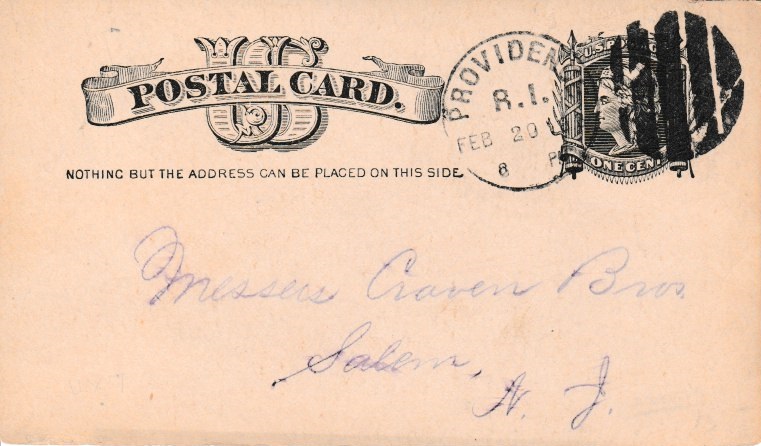 US
POSTAL CARD.
NOTHING BUT THE ADDRESS CAN BE PLACED ON THIS SIDE
PROVIDEN
R.I.
FEB 20
8 P
U.S. POSTAGE
ONE CENT
Messers Craven Bros
Salem,
N. J.